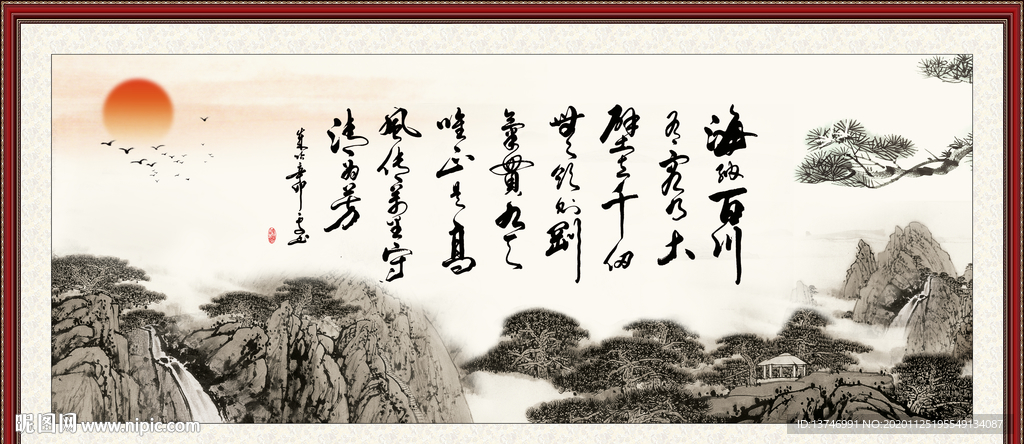 海纳百川
有容乃大
壁立千仞
無欲则刚
氣貫九天
唯正是高
風传万里守
清为芳
昵图网 www.nipic.com
ID:13746991 NO:20201125195549134087